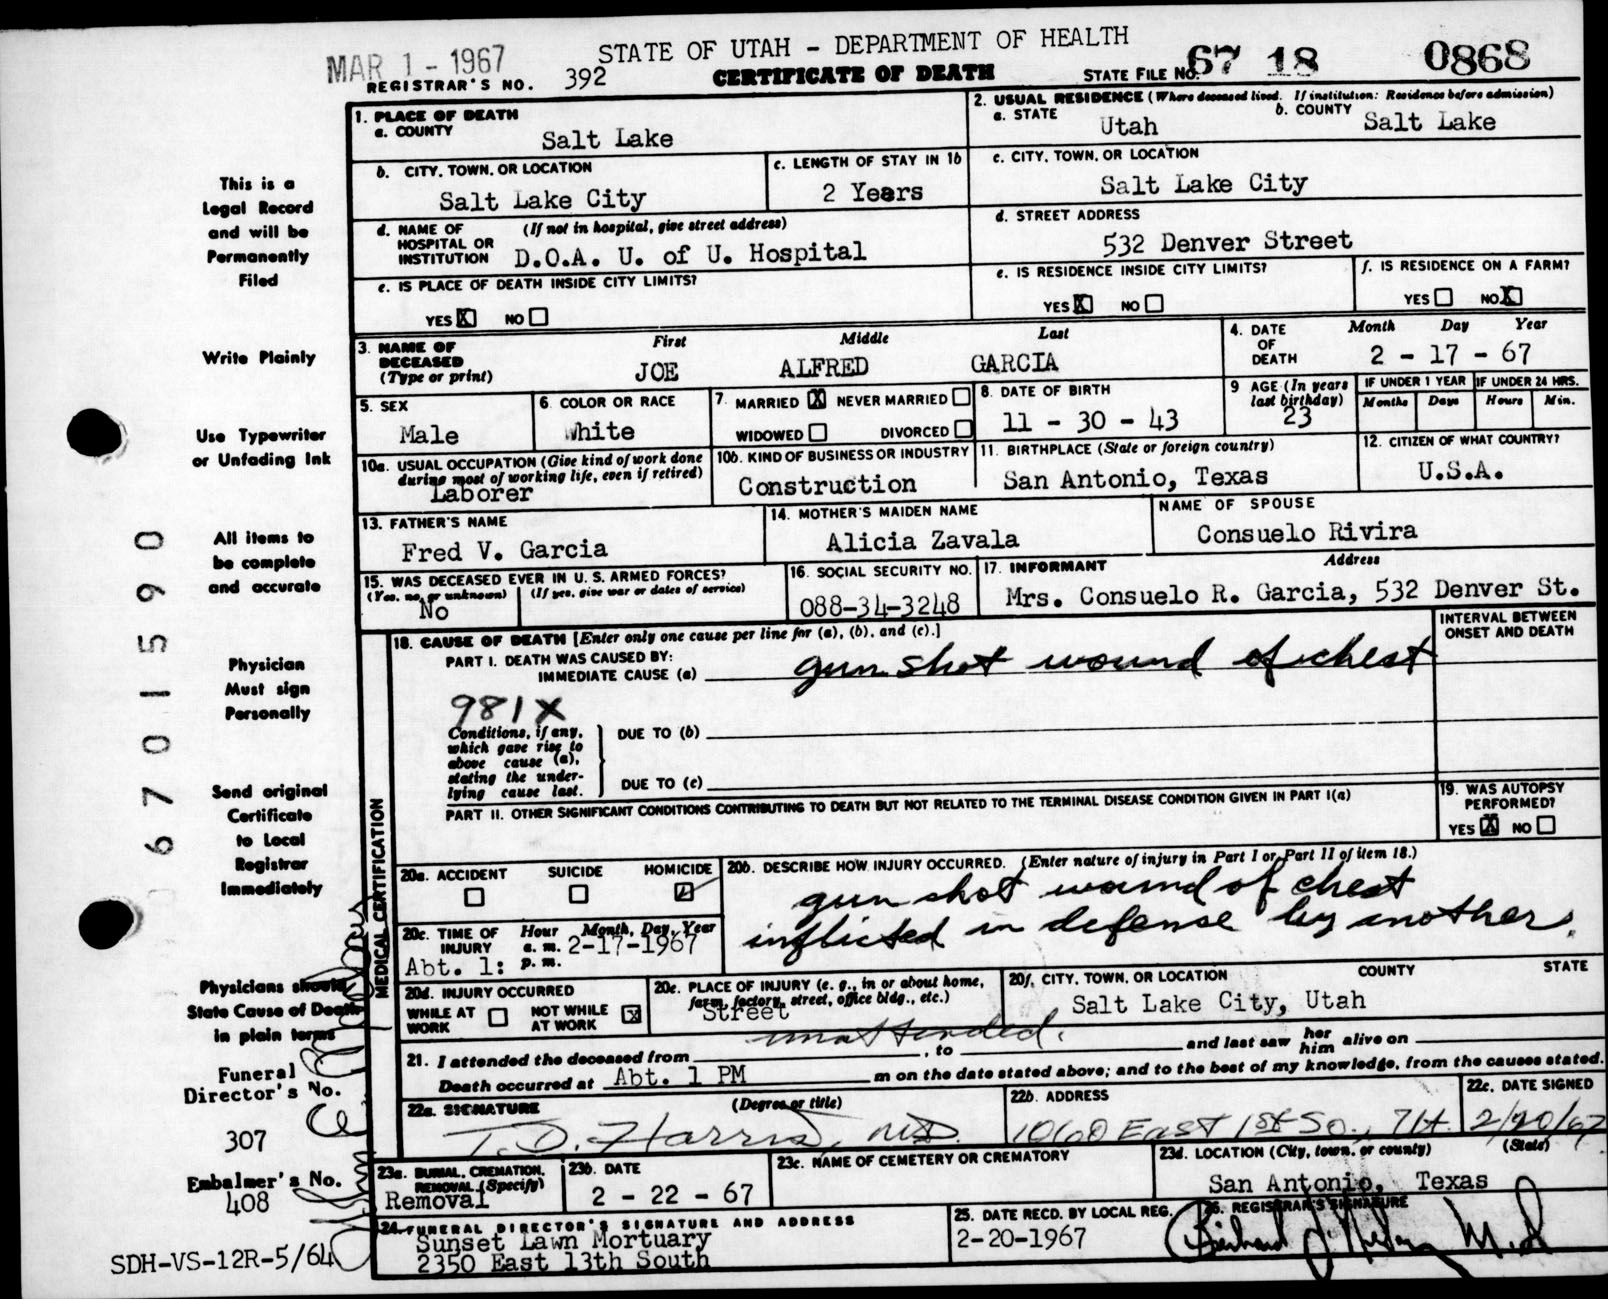 MAR 1 - 1967
STATE OF UTAH - DEPARTMENT OF HEALTH
REGISTRAR'S NO. 392
CERTIFICATE OF DEATH
STATE FILE NO. 67 18 0868
This is a
Legal Record
and will be
Permanently
Filed
Write Plainly
Use Typewriter
or Unfading Ink
All items to
be complete
and accurate
Physician
Must sign
Personally
Send original
Certificate
to Local
Registrar
Immediately
Physicians should
State Cause of Death
in plain terms
Funeral
Director's No.
307
Embalmer's No.
408
SDH-VS-12R-5/64
6701590
1. PLACE OF DEATH
a. COUNTY
Salt Lake
2. USUAL RESIDENCE (Where deceased lived. If institution: Residence before admission)
a. STATE Utah
b. COUNTY Salt Lake
b. CITY, TOWN, OR LOCATION
Salt Lake City
c. LENGTH OF STAY IN 1b
2 Years
c. CITY, TOWN, OR LOCATION
Salt Lake City
d. NAME OF HOSPITAL OR INSTITUTION (If not in hospital, give street address)
D.O.A. U. of U. Hospital
d. STREET ADDRESS
532 Denver Street
e. IS PLACE OF DEATH INSIDE CITY LIMITS?
YES X NO
e. IS RESIDENCE INSIDE CITY LIMITS?
YES X NO
f. IS RESIDENCE ON A FARM?
YES NO X
3. NAME OF DECEASED (Type or print)
First Middle Last
JOE ALFRED GARCIA
4. DATE OF DEATH
Month Day Year
2 - 17 - 67
5. SEX
Male
6. COLOR OR RACE
White
7. MARRIED X NEVER MARRIED
WIDOWED DIVORCED
8. DATE OF BIRTH
11 - 30 - 43
9 AGE (In years last birthday)
23
IF UNDER 1 YEAR
Months Days
IF UNDER 24 HRS.
Hours Min.
10a. USUAL OCCUPATION (Give kind of work done during most of working life, even if retired)
Laborer
10b. KIND OF BUSINESS OR INDUSTRY
Construction
11. BIRTHPLACE (State or foreign country)
San Antonio, Texas
12. CITIZEN OF WHAT COUNTRY?
U.S.A.
13. FATHER'S NAME
Fred V. Garcia
14. MOTHER'S MAIDEN NAME
Alicia Zavala
NAME OF SPOUSE
Consuelo Rivira
15. WAS DECEASED EVER IN U. S. ARMED FORCES?
(Yes, no, or unknown) (If yes, give war or dates of service)
No
16. SOCIAL SECURITY NO.
088-34-3248
17. INFORMANT Address
Mrs. Consuelo R. Garcia, 532 Denver St.
MEDICAL CERTIFICATION
18. CAUSE OF DEATH [Enter only one cause per line for (a), (b), and (c).]
INTERVAL BETWEEN ONSET AND DEATH
PART I. DEATH WAS CAUSED BY:
IMMEDIATE CAUSE (a) gun shot wound of chest
981X
Conditions, if any, which gave rise to above cause (a), stating the underlying cause last.
DUE TO (b)
DUE TO (c)
PART II. OTHER SIGNIFICANT CONDITIONS CONTRIBUTING TO DEATH BUT NOT RELATED TO THE TERMINAL DISEASE CONDITION GIVEN IN PART I(a)
19. WAS AUTOPSY PERFORMED?
YES X NO
20a. ACCIDENT SUICIDE HOMICIDE
20b. DESCRIBE HOW INJURY OCCURRED. (Enter nature of injury in Part I or Part II of item 18.)
gun shot wound of chest
inflicted in defense by another.
20c. TIME OF INJURY Hour Month, Day, Year
a. m. 2-17-1967
Abt. 1: p. m.
20d. INJURY OCCURRED
WHILE AT WORK NOT WHILE AT WORK X
20e. PLACE OF INJURY (e. g., in or about home, farm, factory, street, office bldg., etc.)
Street
20f. CITY, TOWN, OR LOCATION COUNTY STATE
Salt Lake City, Utah
unattended.
21. I attended the deceased from , to and last saw her him alive on
Death occurred at Abt. 1 PM m on the date stated above; and to the best of my knowledge, from the causes stated.
22a. SIGNATURE (Degree or title)
T. D. Harris, MD
22b. ADDRESS
1060 East 1st So.,
22c. DATE SIGNED
2/20/67
23a. BURIAL, CREMATION, REMOVAL (Specify)
Removal
23b. DATE
2 - 22 - 67
23c. NAME OF CEMETERY OR CREMATORY
23d. LOCATION (City, town, or county) (State)
San Antonio, Texas
24. FUNERAL DIRECTOR'S SIGNATURE AND ADDRESS
Sunset Lawn Mortuary
2350 East 13th South
25. DATE RECD. BY LOCAL REG.
2-20-1967
26. REGISTRAR'S SIGNATURE